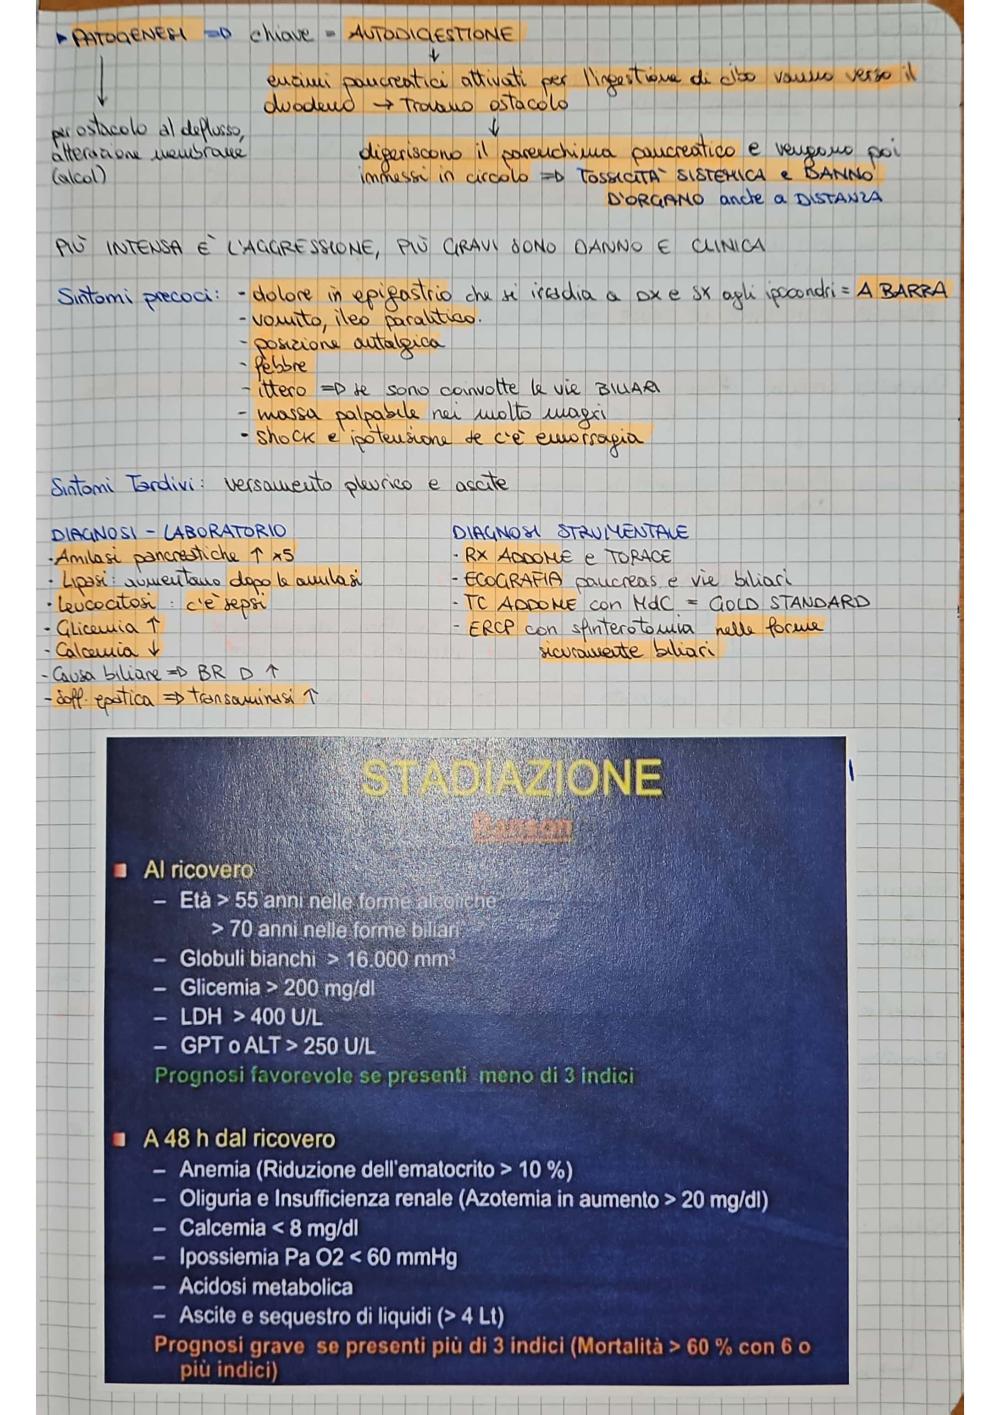 ▸ PATOGENESI => chiave = AUTODIGESTIONE
↓
enzimi pancreatici attivati per l'ingestione di cibo vanno verso il
duodeno → Trovano ostacolo
↓
per ostacolo al deflusso,
alterazione membrane
(alcol)
digeriscono il parenchima pancreatico e vengono poi
immessi in circolo => TOSSICITA' SISTEMICA e DANNO
D'ORGANO anche a DISTANZA
PIÙ INTENSA È L'AGGRESSIONE, PIÙ GRAVI SONO DANNO E CLINICA
Sintomi precoci: - dolore in epigastrio che si irradia a DX e SX agli ipocondri = A BARRA
- vomito, ileo paralitico.
- posizione antalgica
- febbre
- ittero => se sono coinvolte le vie BILIARI
- massa palpabile nei molto magri
- shock e ipotensione se c'è emorragia
Sintomi Tardivi: versamento pleurico e ascite
DIAGNOSI - LABORATORIO
· Amilasi pancreatiche ↑ x5
· Lipasi: aumentano dopo le amilasi
· Leucocitosi : c'è sepsi
- Glicemia ↑
- Calcemia ↓
- Causa biliare => BR D ↑
- Soff. epatica => transaminasi ↑
DIAGNOSI STRUMENTALE
- RX ADDOME e TORACE
- ECOGRAFIA pancreas e vie biliari
- TC ADDOME con MdC = GOLD STANDARD
- ERCP con sfinterotomia nelle forme
sicuramente biliari
STADIAZIONE
Ranson
Al ricovero
– Età > 55 anni nelle forme alcoliche
> 70 anni nelle forme biliari
– Globuli bianchi > 16.000 mm³
– Glicemia > 200 mg/dl
– LDH > 400 U/L
– GPT o ALT > 250 U/L
Prognosi favorevole se presenti meno di 3 indici
A 48 h dal ricovero
– Anemia (Riduzione dell'ematocrito > 10 %)
– Oliguria e Insufficienza renale (Azotemia in aumento > 20 mg/dl)
– Calcemia < 8 mg/dl
– Ipossiemia Pa O2 < 60 mmHg
– Acidosi metabolica
– Ascite e sequestro di liquidi (> 4 Lt)
Prognosi grave se presenti più di 3 indici (Mortalità > 60 % con 6 o
più indici)